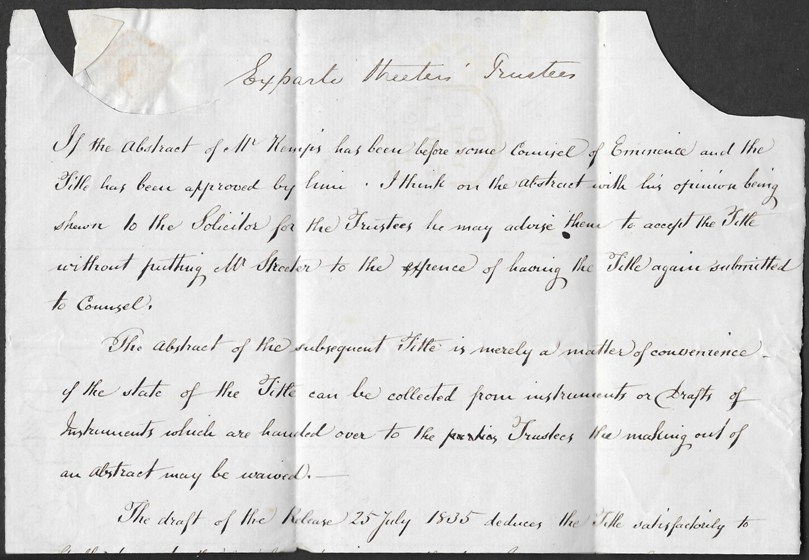 Exparte Streeters' Trustees
If the Abstract of Mr Kemps has been before some Counsel of Eminence and the
Title has been approved by him. I think on the Abstract with his opinion being
shewn to the Solicitor for the Trustees he may advise them to accept the Title
without putting Mr Streeter to the expence of having the Title again submitted
to Counsel.
The abstract of the subsequent Title is merely a matter of convenience
if the state of the Title can be collected from instruments or Drafts of
Instruments which are handed over to the Trustees the making out of
an Abstract may be waived.—
The draft of the Release 25 July 1835 deduces the Title satisfactorily to